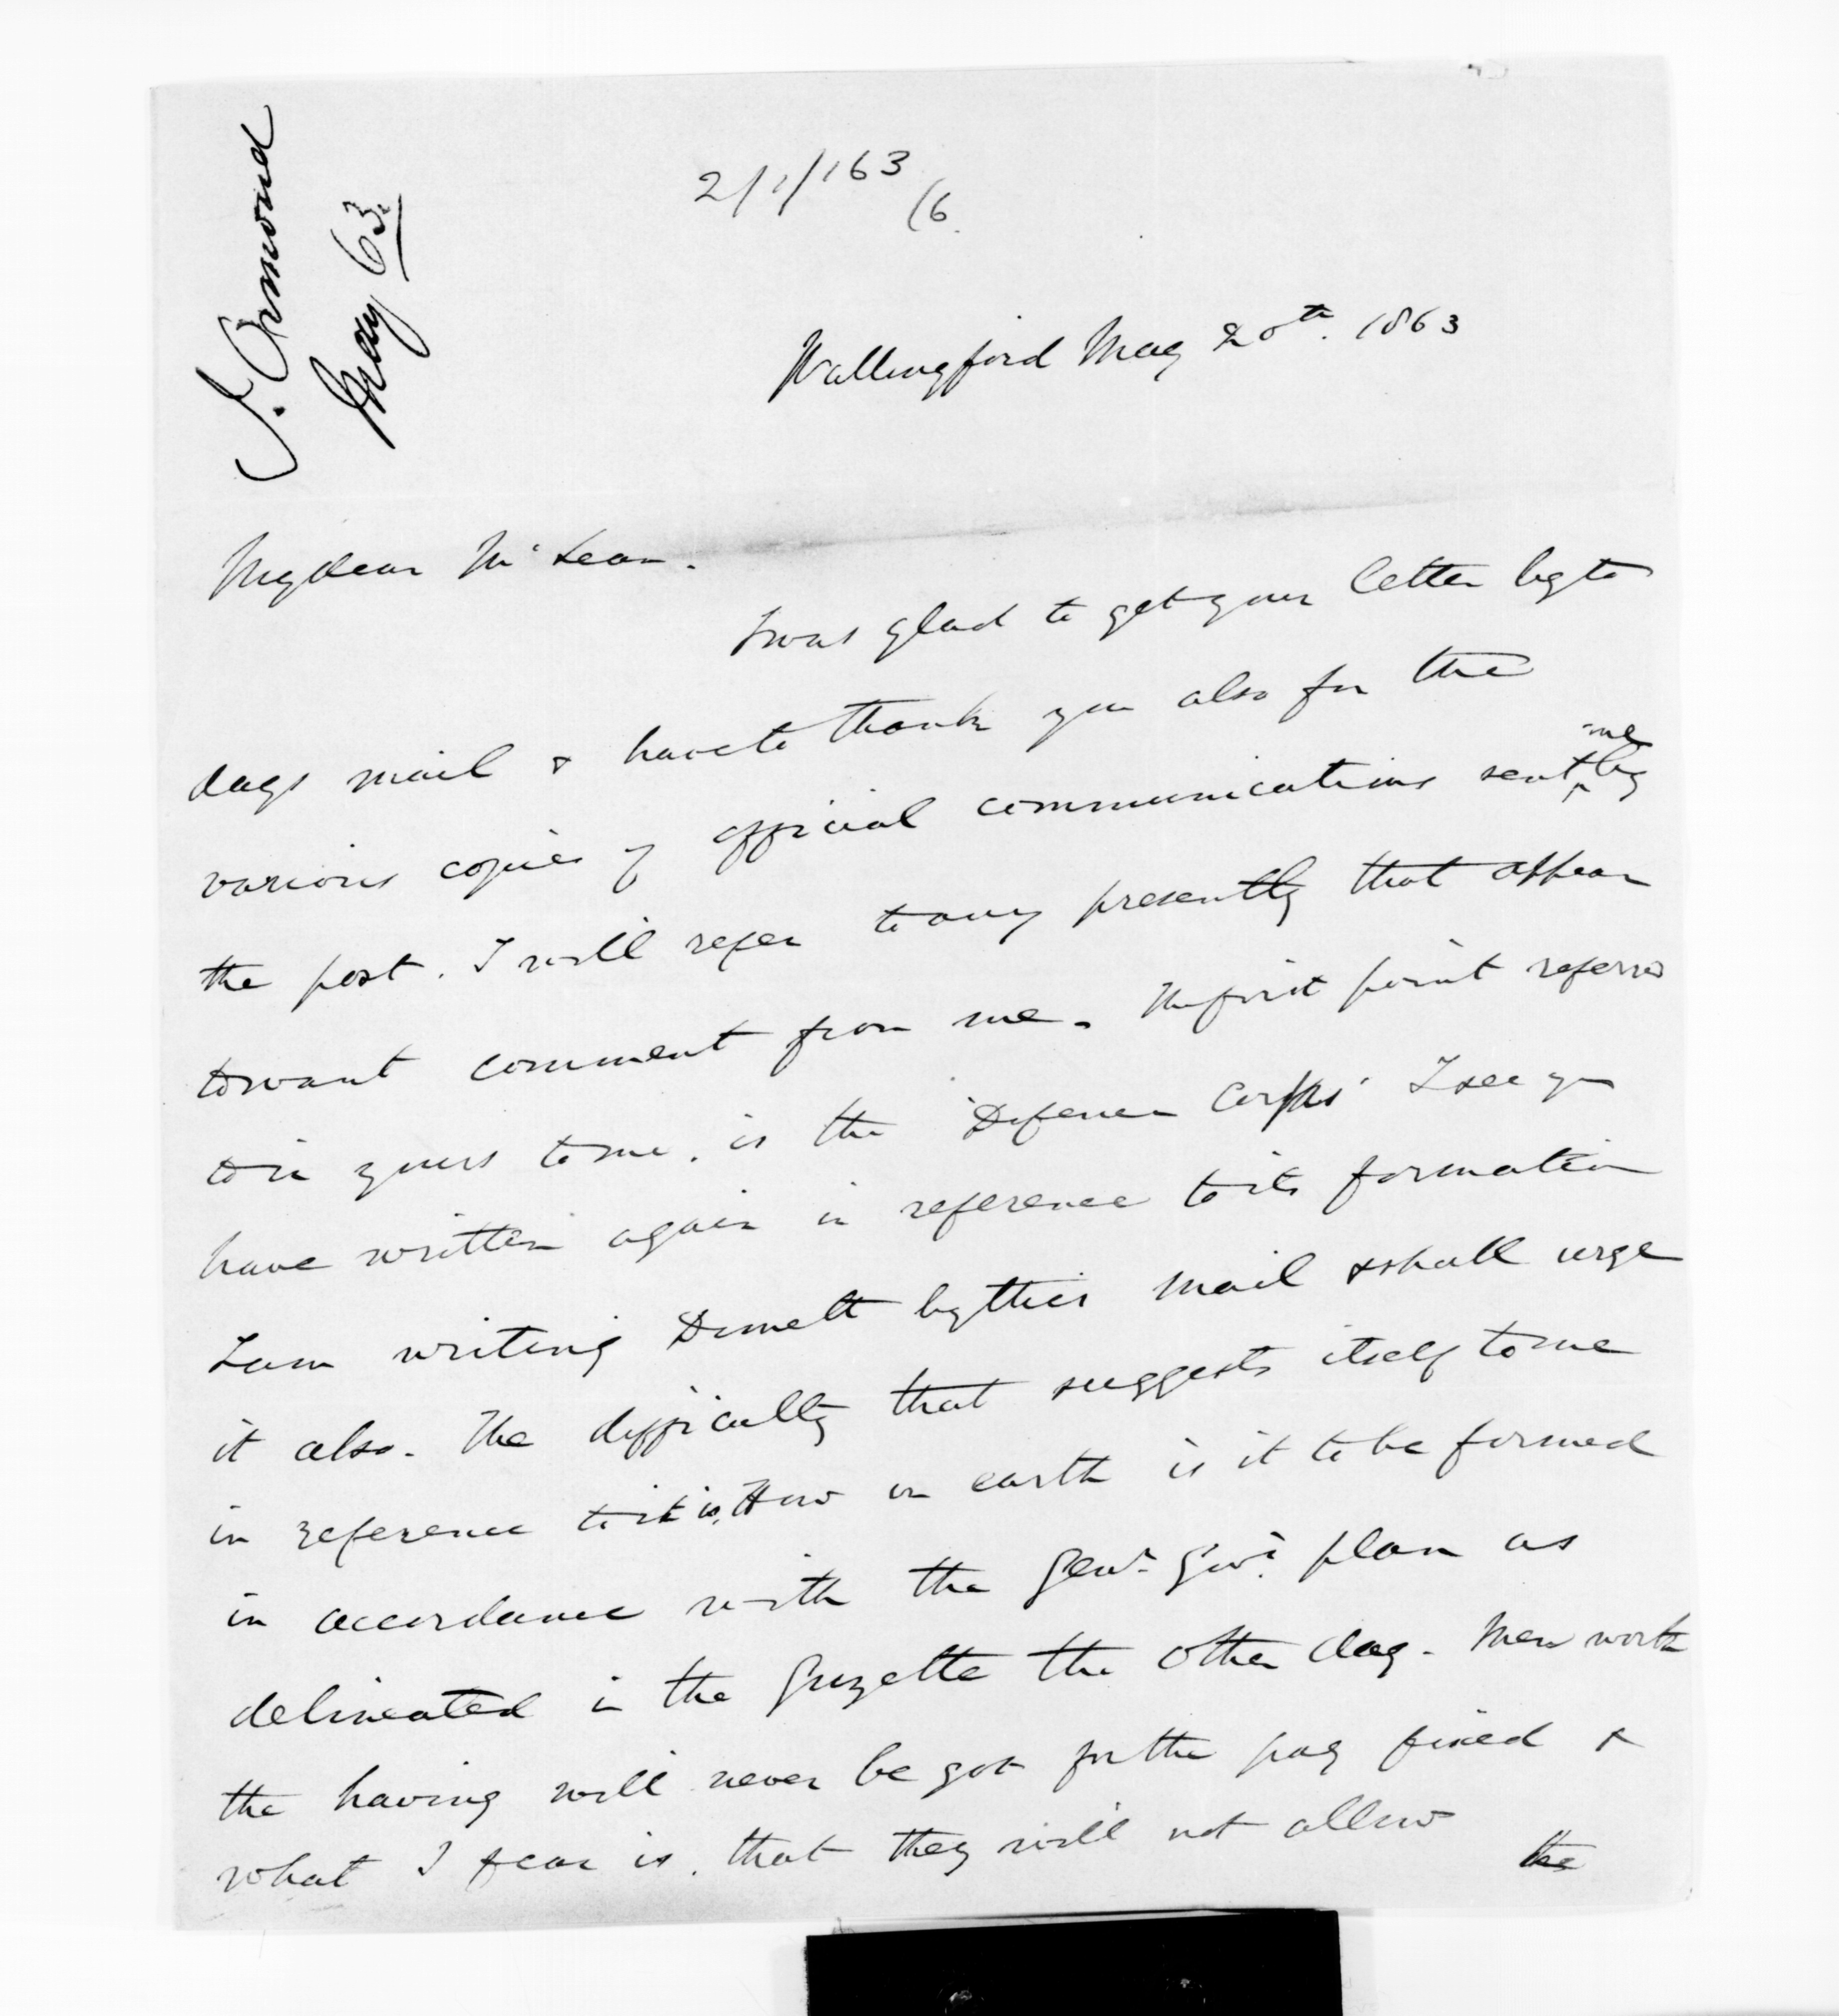 J. Ormond
May 63.
2/1/163
(6.
Wallingford May 20th. 1863
My dear McLean.
I was glad to get your letter by to
days mail & have to thank you also for the
various copies of official communications sent me by
the post. I will refer to any presently that appear
to want comment from me. The first point referred
to in yours to me. is the 'Defence Corps' I see you
have written again in reference to its formation
I am writing Domett by this mail & shall urge
it also. The difficulty that suggests itself to me
in reference to it is, How on earth is it to be formed
in accordance with the Genl. Govt. plan as
delineated in the Gazette the other day. Men worth
the having will never be got for the pay fixed &
what I fear is. that they will not allow
the